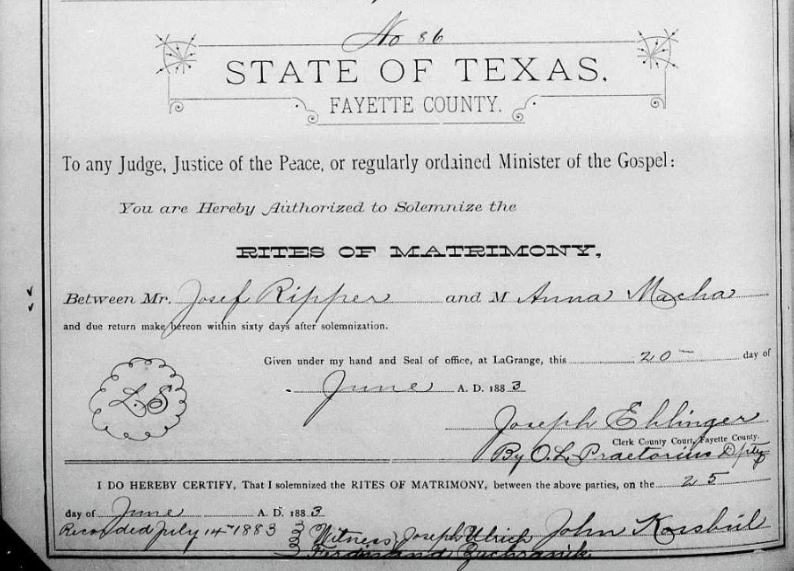 No 86
STATE OF TEXAS,
FAYETTE COUNTY.
To any Judge, Justice of the Peace, or regularly ordained Minister of the Gospel:
You are Hereby Authorized to Solemnize the
RITES OF MATRIMONY,
Between Mr. Josef Ripper and M Anna Macha
and due return make hereon within sixty days after solemnization.
Given under my hand and Seal of office, at LaGrange, this 20 day of
L.S
June A. D. 1883
Joseph Ehlinger
Clerk County Court, Fayette County.
By O.L. Praetorius Dpty
I DO HEREBY CERTIFY, That I solemnized the RITES OF MATRIMONY, between the above parties, on the 25
day of June A. D. 1883
Recorded July 14 1883 Witness Joseph Ulrich John
Ferdinand